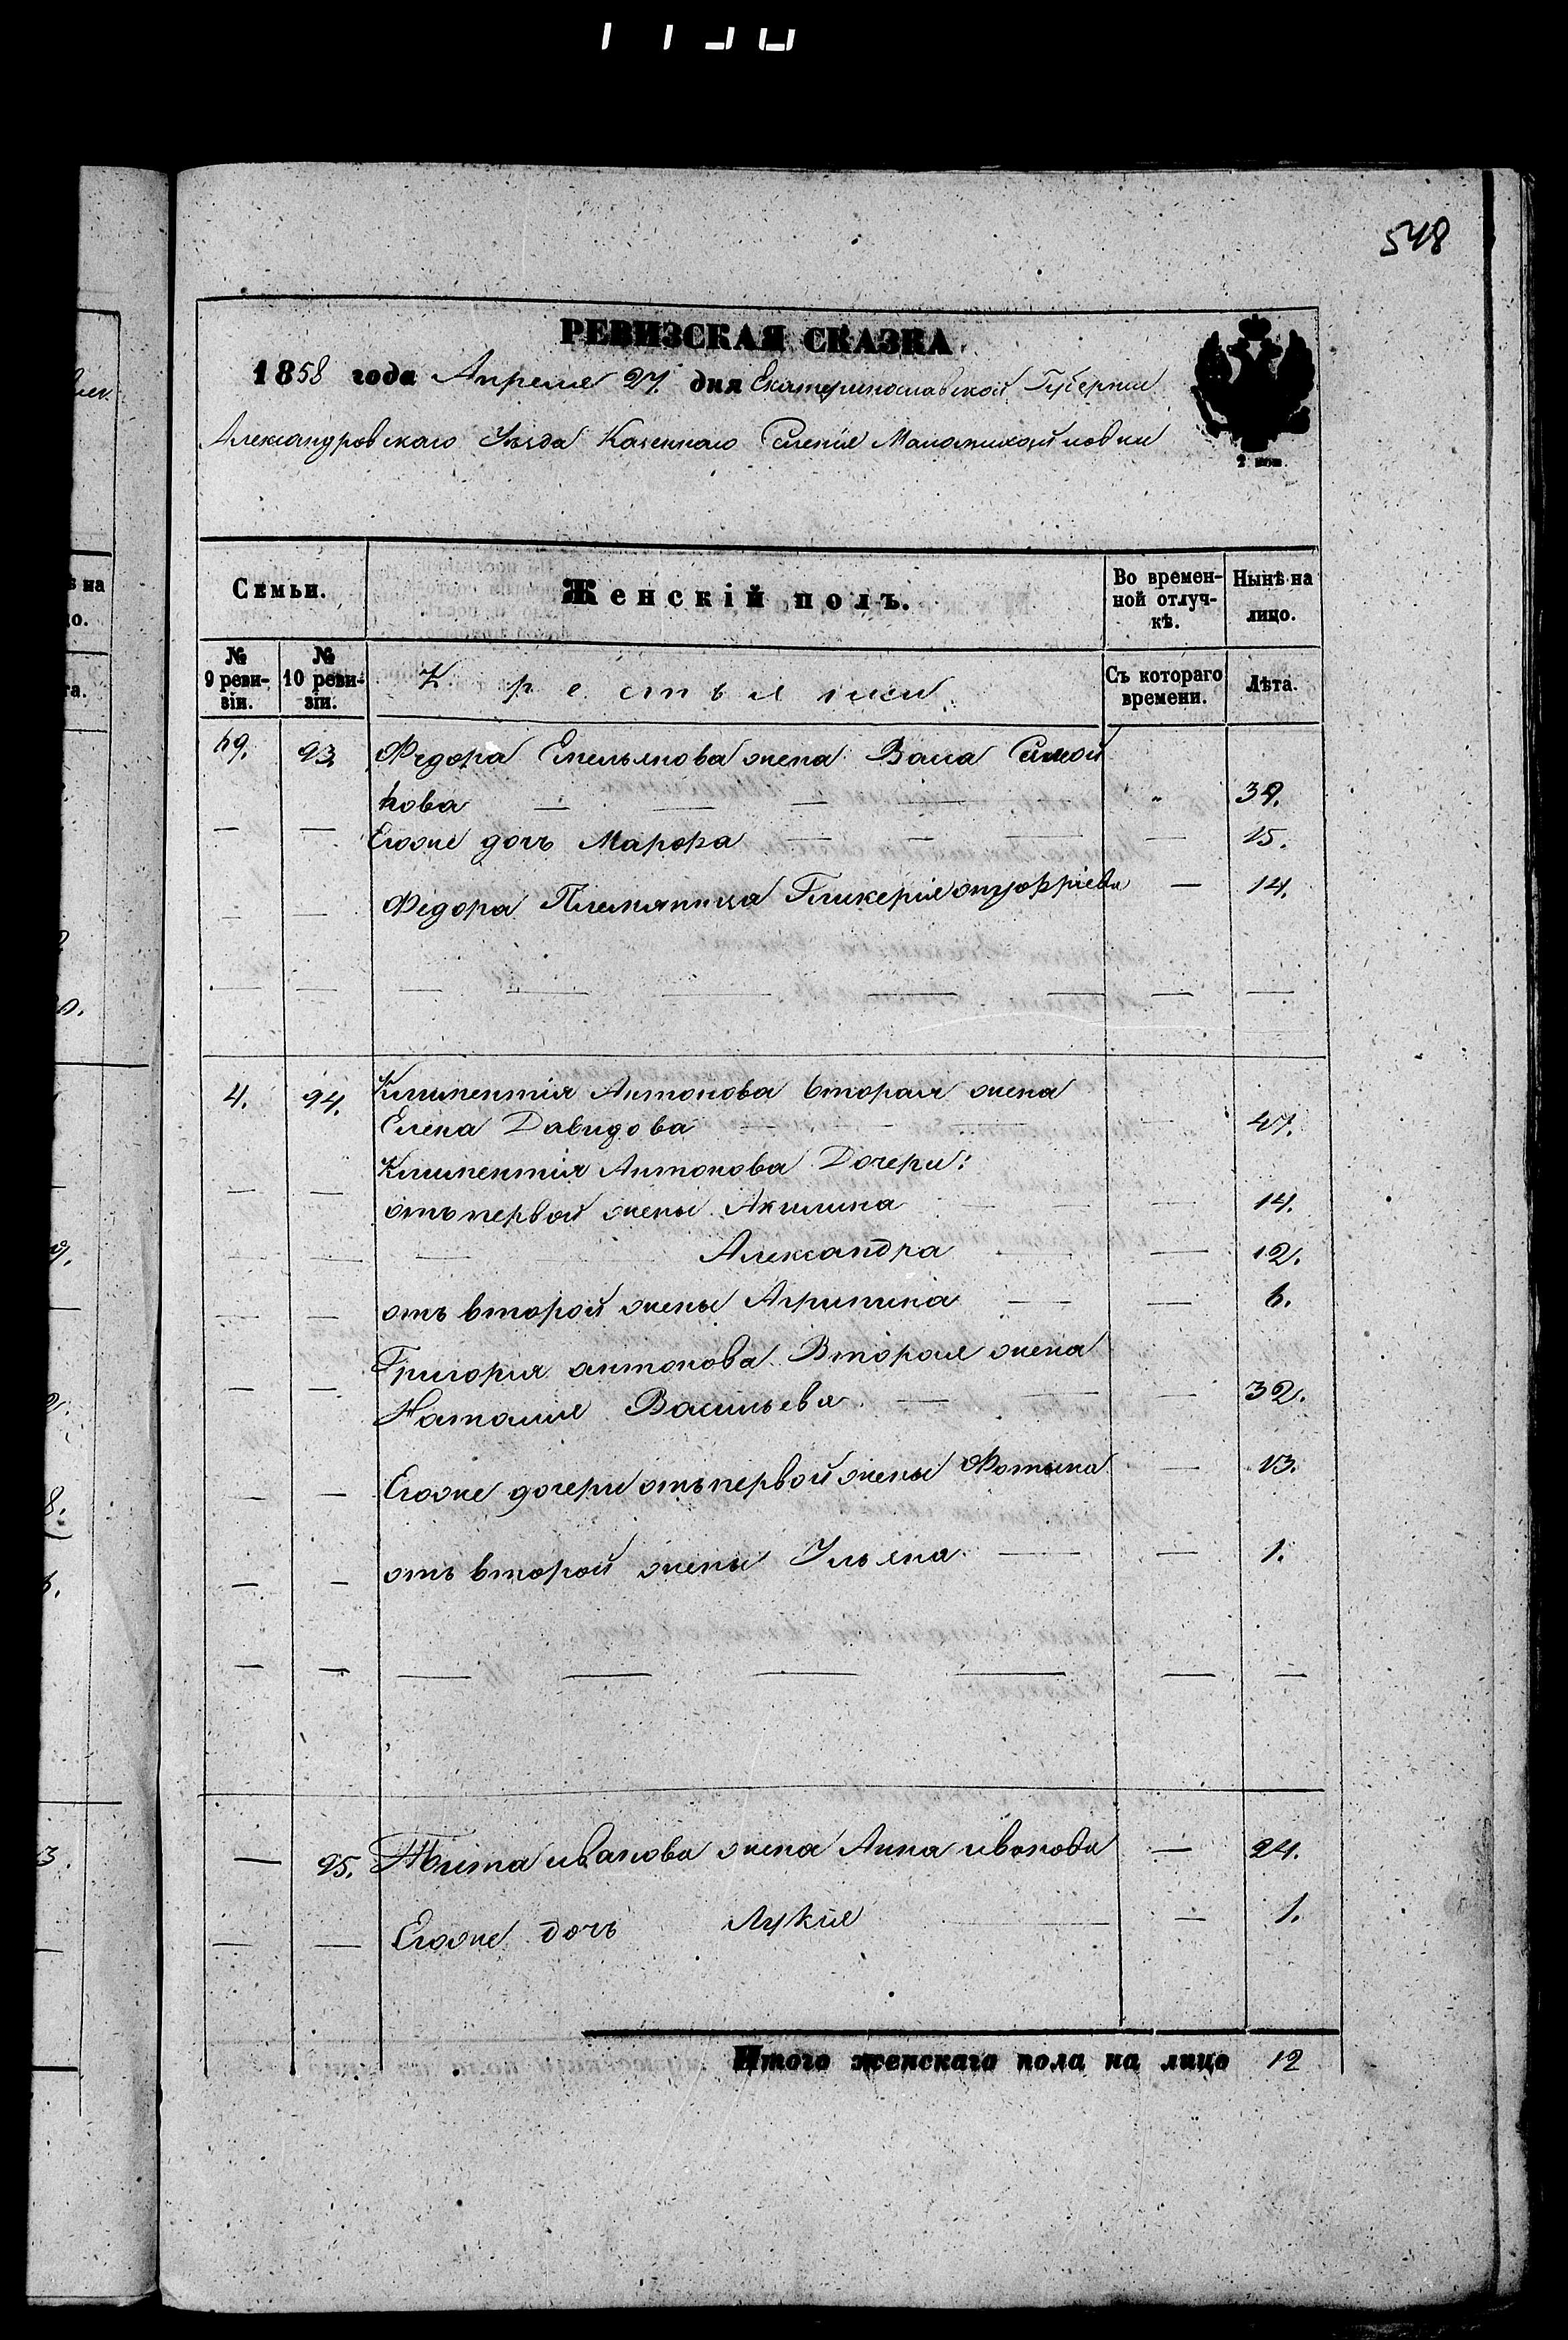 548
РЕВИЗСКАЯ СКАЗКА.
1858 года Апреля 27. дня Екатеринославской Губернии
Александровскаго Уезда Казеннаго Селенія Маломихайловки
Семьи.
Женскій полъ.
Во времен-
ной отлуч-
кѣ.
Нынѣ на
лицо.
№
9 реви-
зіи.
№
10 реви-
зіи.
Крестьянки
Съ котораго
времени.
Лѣта.
69. 93. Федора Емельянова жена Васа Самой
лова — — — — " 39.
— — Егоже дочь Марфа — — — — 15.
— — Федора Племяница Гликерія — 14.
— — — — — — — —
4. 94. Климентія Антонова вторая жена
Елена Давидова — — — — 47.
Климентія Антонова Дочери:
— — отъ первой жены Акилина — — — 14.
— — — Александра — — — 12.
— — отъ второй жены Агрипина — — — 6.
Григорія антонова Вторая жена
— — Наталия Васильева — — — 32.
— — Егоже дочери отъ первой жены Фотына — 13.
— — отъ второй жены Ульяна — — 1.
— — — — — — — —
— 95. Тита иванова жена Анна иванова — 24.
— — Егоже дочь Лукія — — 1.
Итого женскаго пола на лицо 12